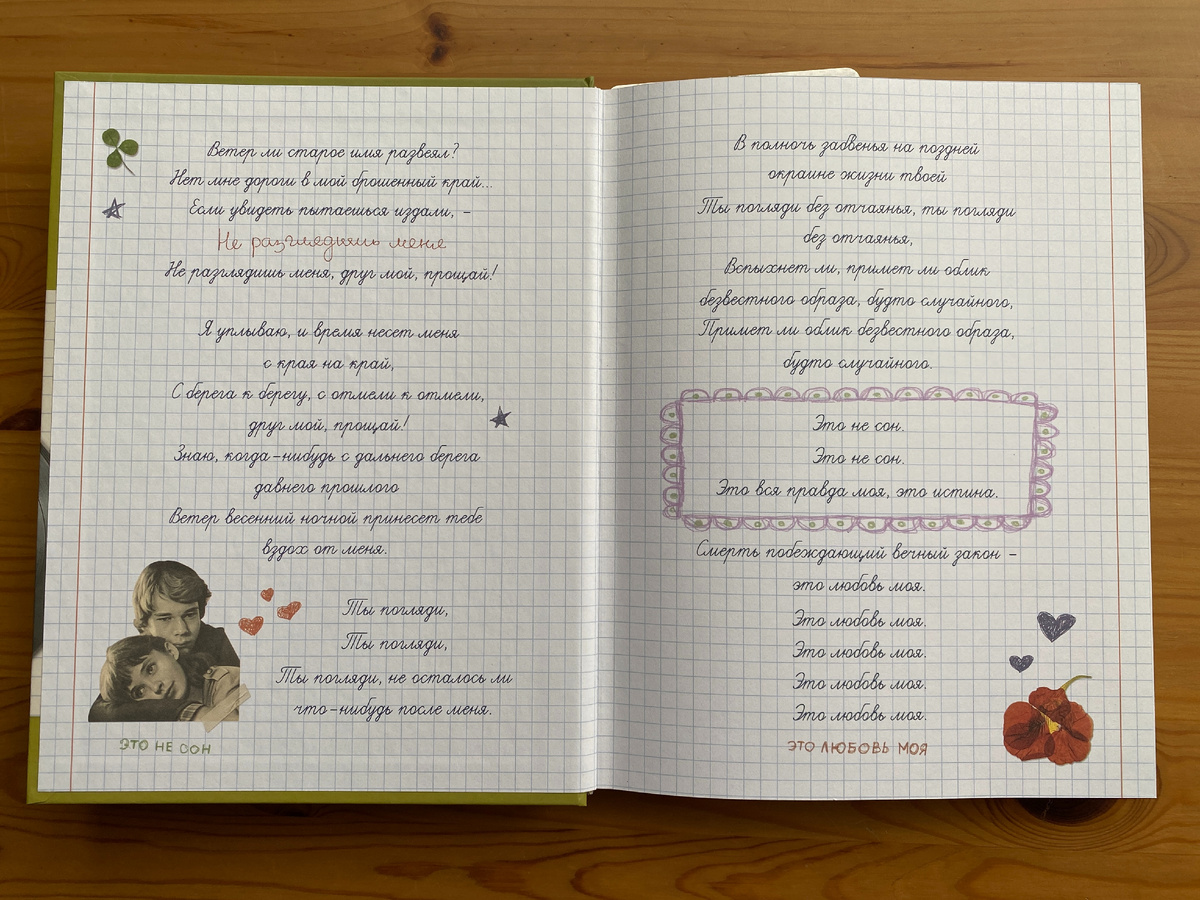 Ветер ли старое имя развеял?
Нет мне дороги в мой брошенный край...
Если увидеть пытаешься издали, –
Не разглядишь меня
Не разглядишь меня, друг мой, прощай!
Я уплываю, и время несет меня
с края на край,
С берега к берегу, с отмели к отмели,
друг мой, прощай!
Знаю, когда-нибудь с дальнего берега
давнего прошлого
Ветер весенний ночной принесет тебе
вздох от меня.
Ты погляди,
Ты погляди,
Ты погляди, не осталось ли
что-нибудь после меня.
ЭТО НЕ СОН
В полночь забвенья на поздней
окраине жизни твоей
Ты погляди без отчаянья, ты погляди
без отчаянья,
Вспыхнет ли, примет ли облик
безвестного образа, будто случайного,
Примет ли облик безвестного образа,
будто случайного.
Это не сон.
Это не сон.
Это вся правда моя, это истина.
Смерть побеждающий вечный закон –
это любовь моя.
Это любовь моя.
Это любовь моя.
Это любовь моя.
Это любовь моя.
ЭТО ЛЮБОВЬ МОЯ